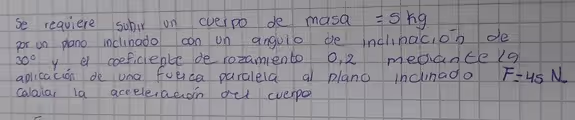 Se requiere subir un cuerpo de masa = 5 kg
por un plano inclinado con un angulo de inclinación de
30° y el coeficiente de rozamiento 0,2 mediante la
aplicación de una fuerza paralela al plano inclinado F = 45 N
calcular la aceleración del cuerpo